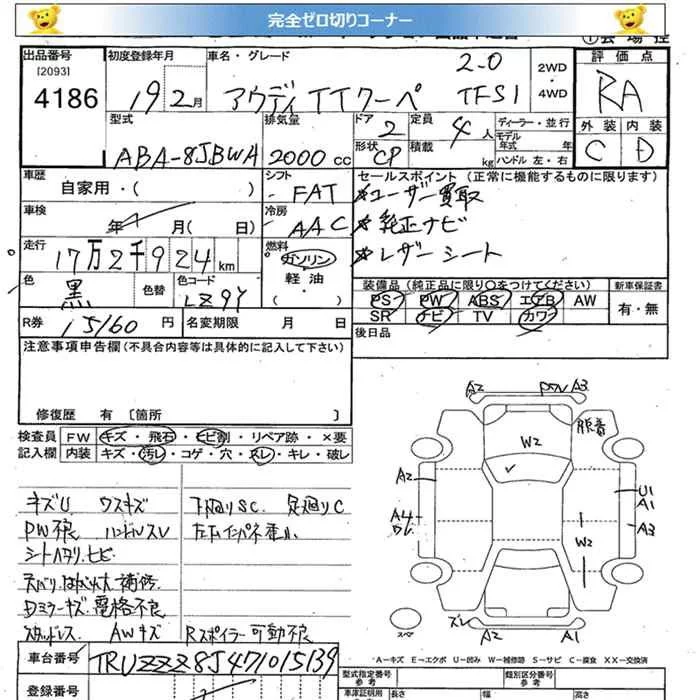 完全ゼロ切りコーナー
出品番号
[2093]
4186
初度登録年月
19年2月
車名・グレード
アウディ TTクーペ
2.0
TFSI
2WD
・
4WD
評価点
RA
外装 内装
C D
型式
ABA-8JBWA
排気量
2000 cc
ドア
2
形状
CP
定員
4人
積載
kg
ディーラー・並行
モデル
年式 年
ハンドル 左・右
車歴
自家用・( )
シフト
FAT
冷房
AAC
セールスポイント(正常に機能するものに限ります)
*ユーザー買取
*純正ナビ
*レザーシート
車検
年 月( 日)
走行
17万2千924km
燃料
ガソリン
軽油・
( )
色
黒
色替
色コード
LZ9Y
装備品(純正品に限り○をつけてください)
PS PW ABS エアB AW
SR ナビ TV カワ
新車保証書
有・無
R券
15160 円
名変期限 月 日
後日品
注意事項申告欄(不具合内容等は具体的に記入して下さい)
修復歴 有〔箇所 〕
検査員
記入欄
FW キズ・飛石・ヒビ割・リペア跡・×要
内装 キズ・汚レ・コゲ・穴・スレ・キレ・破レ
キズU ウスキズ
PW不良 ハンドルスレ
シートヘタリ、ヒビ
下回りSC 足廻りC
Dミラーキズ、電格不良
スタッドレス AWキズ
Rスポイラー可動不良
A2
A3
W2
A2
A4
U1
A1
A3
W2
ズレ
A2
A1
スペア
A-キズ E-エクボ U-凹み W-補修跡 S-サビ C-腐食 XX-交換済
車台番号
TRUZZZ8J471015139
登録番号
型式指定番号
参考
類別区分番号
参考
車庫証明用
長さ 幅 高さ